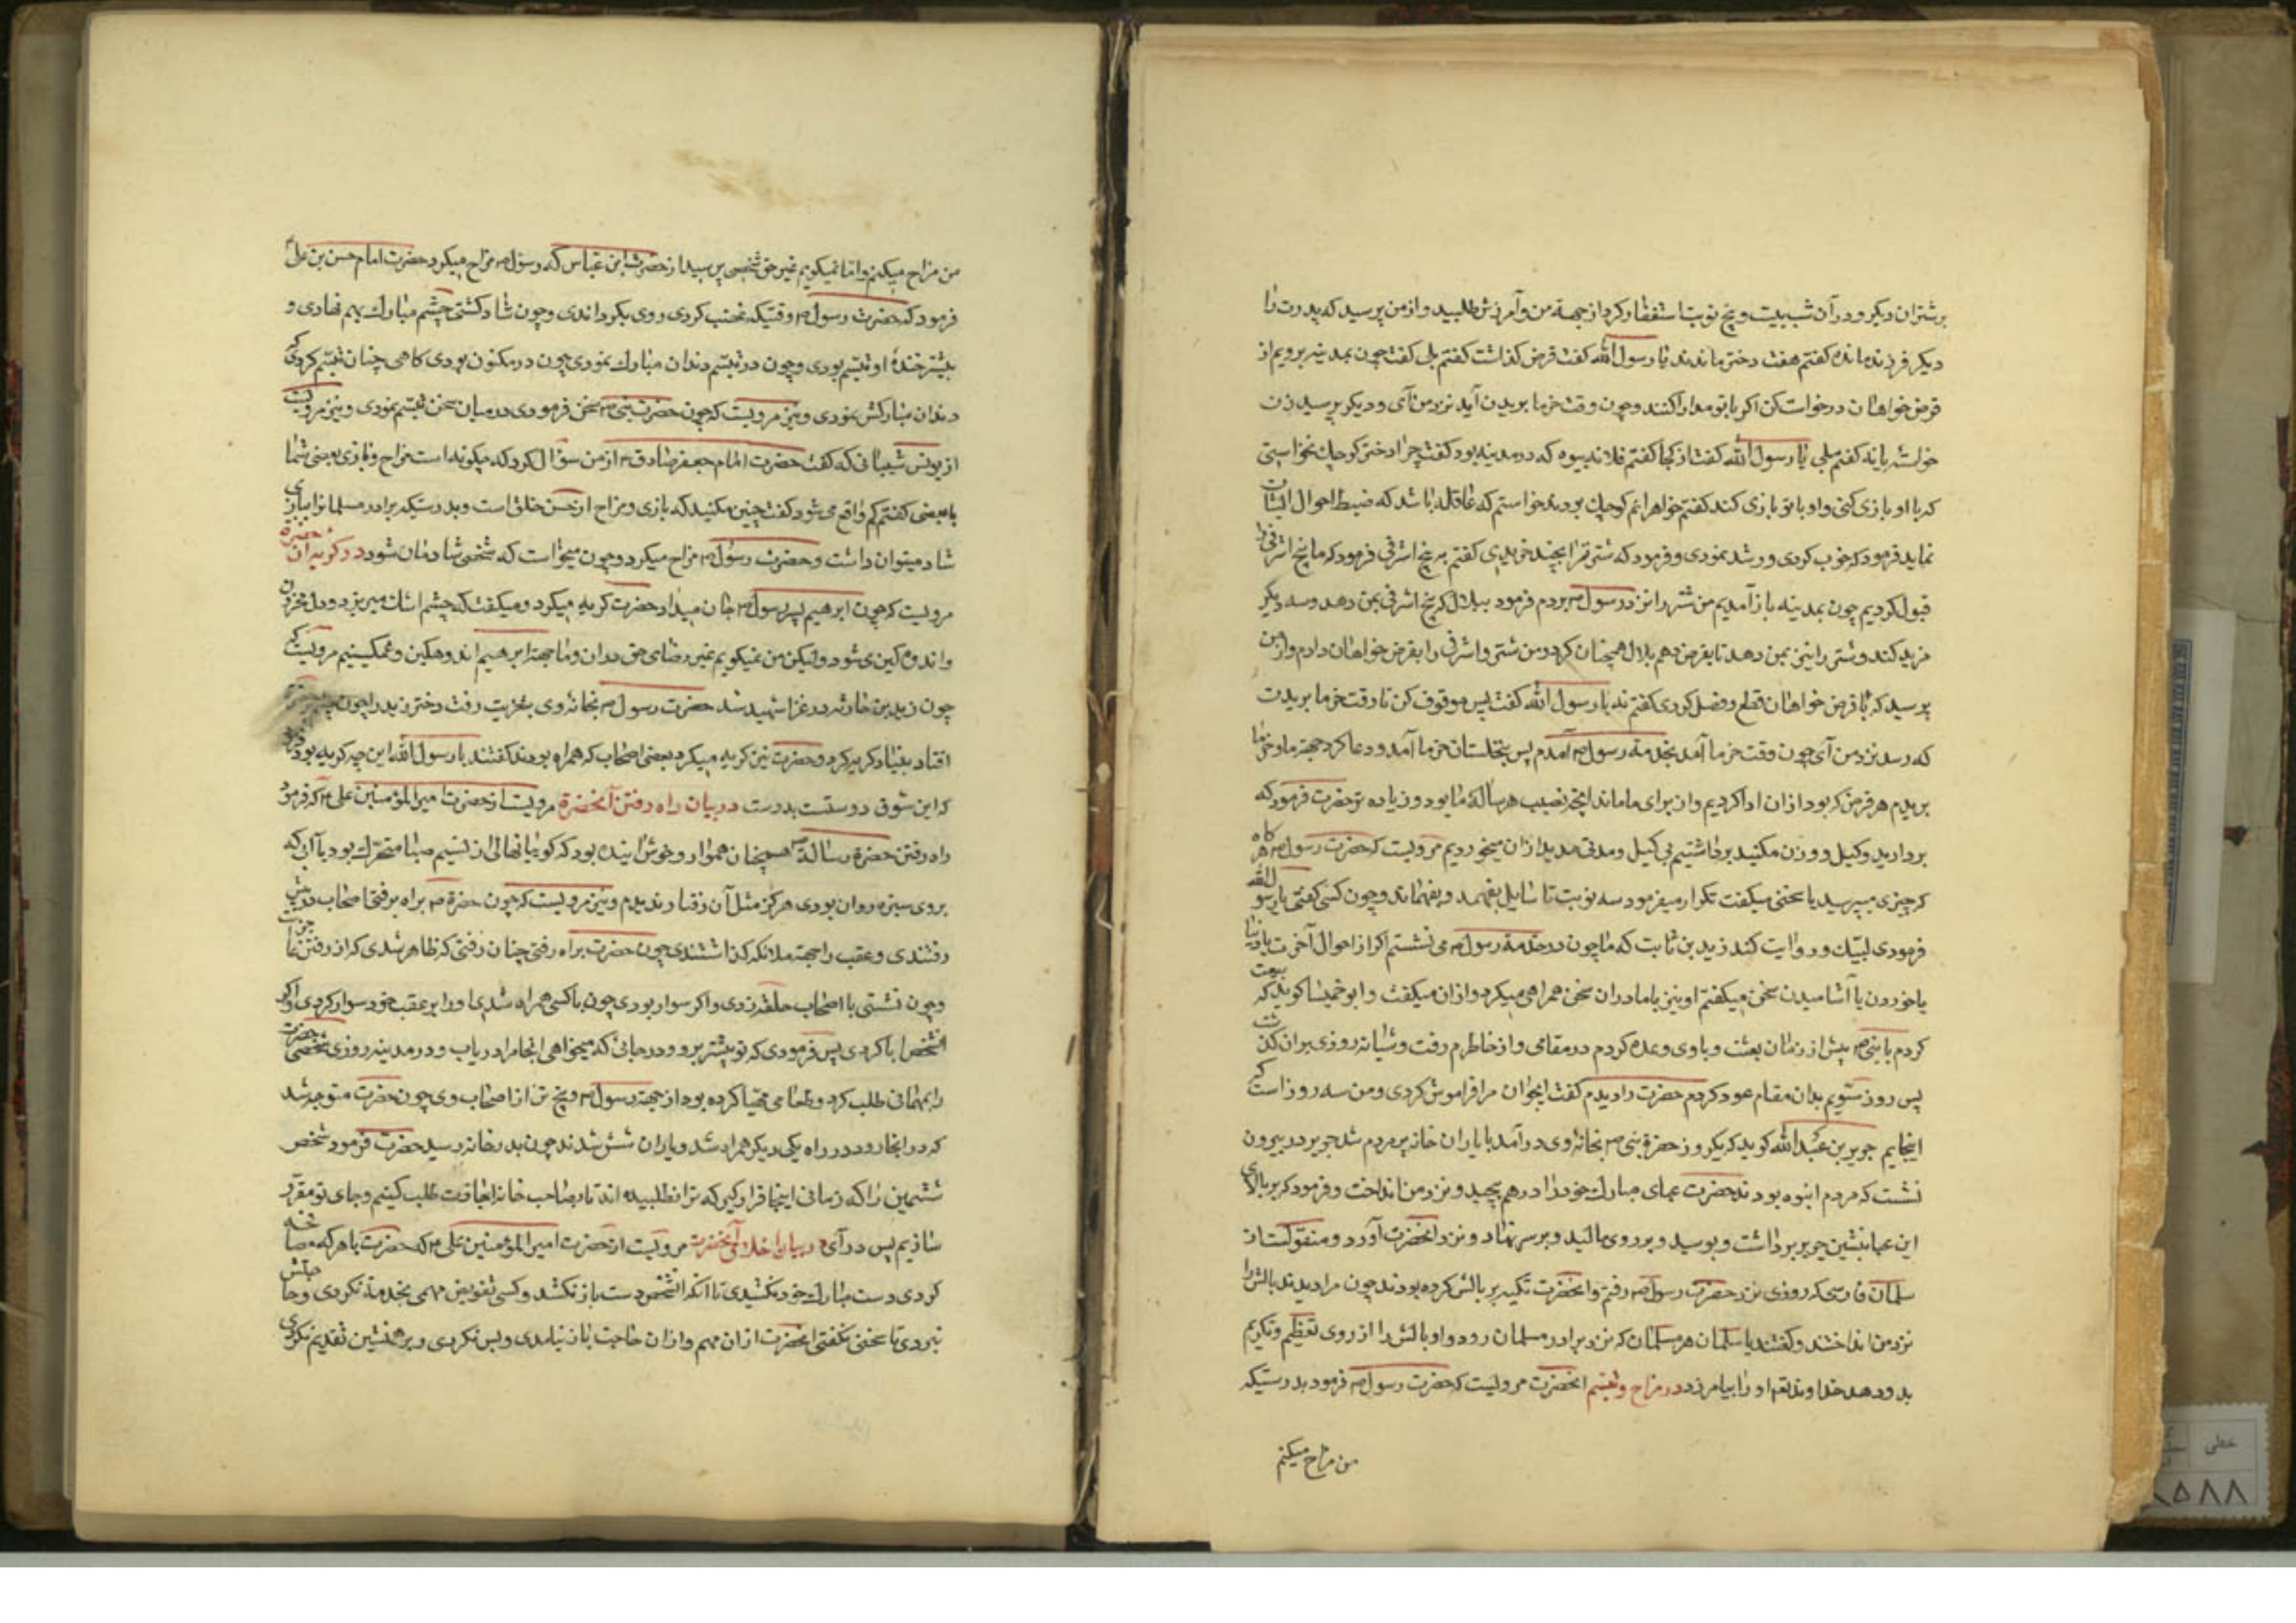 بر شتران دیگر و در آن شب بیست و پنج نوبت استغفار کرد از جهة من و آمرزش طلبید و از من پرسید که پدرت را
دیگر فرزند مانده گفتم هفت دختر ماندند یا رسول الله گفت قرض گذاشت گفتم بلی گفت چون بمدینه برویم از
قرض خواهان درخواست کن اگر با تو مدارا کنند و چون وقت خرما بریدن آید نزد من آی و دیگر پرسید زن
خواسته یا نه گفتم بلی یا رسول الله گفت از کجا گفتم فلانه بیوه که در مدینه بود گفت چرا دختر کوچک نخواستی
که با او بازی کنی و او با تو بازی کند گفتم خواهرانم کوچک بودند خواستم که عاقله باشد که ضبط احوال ایشان
نماید فرمود که خوب کردی و رشد نمودی و فرمود که شتر ترا بچند خریدی گفتم به پنج اشرفی فرمود که ما پنج اشرفی را
قبول کردیم چون بمدینه باز آمدیم من شتر را نزد رسول ص بردم فرمود ببلال که پنج اشرفی بمن دهد و سه دیگر
مزید کند و شتر را نیز بمن دهد تا بقرض دهم بلال همچنان کرد و من شتر و اشرفی را بقرض خواهان دادم و از من
پرسید که با قرض خواهان قطع و فصل کردی گفتم نه یا رسول الله گفت پس موقوف کن تا وقت خرما بریدن
که رسد نزد من آی چون وقت خرما آمد بخدمة رسول ص آمدم پس بنخلستان خرما آمد و دعا کرد جهة ما و خرما
بریدم هر قرض که بود از ان ادا کردیم و از برای ما ماند انچه نصیب هر سالهٔ ما بود و زیاده تر حضرت فرمود که
بردارید و کیل و وزن مکنید برداشتیم بی کیل و مدتی مدید از ان میخوردیم مرویست که حضرت رسول ص هرکاه
که چیزی میپرسید یا سخنی میگفت تکرار میفرمود سه نوبت تا سایل بفهمد و بفهماند و چون کسی گفتی یا رسول الله
فرمودی لبیک و روایت کند زید بن ثابت که ما چون در خدمة رسول ص می نشستیم اگر از احوال آخرت یا دنیا
یا خوردن یا آشامیدن سخن میگفتم او نیز با ما در ان سخن همراهی میکرد و از ان میگفت و ابو خمیسا گوید که بیعت
کردم با نبی ص پیش از زمان بعثت و با وی وعده کردم در مقامی و از خاطرم رفت و شبانه روزی بر ان گذشت
پس روز سیّوم بدان مقام عود کردم حضرت را دیدم گفت ایجوان مرا فراموش کردی و من سه روز است که
اینجایم جریر بن عبد الله گوید که یکروز حضرة نبی ص بخانهٔ وی درآمد با یاران خانه پر مردم شد جریر در بیرون
نشست که مردم انبوه بودند حضرت عبای مبارک خود را درهم پیچید و نزد من انداخت و فرمود که بر بالای
این عبا بنشین جریر برداشت و بوسید و بر روی مالید و بر سر نهاد و نزد انحضرت آورد و منقولست از
سلمان فارسی که روزی نزد حضرت رسول ص رفتم و انحضرت تکیه بر بالش کرده بودند چون مرا دیدند بالش را
نزد من انداختند و گفتند یا سلمان هر مسلمان که نزد برادر مسلمان رود و او بالش را از روی تعظیم و تکریم
بدو دهد خداوند تعم او را بیامرزد در مزاح و تبسّم انحضرت مرویست که حضرت رسول ص فرمود بدرستیکه
من مزاح میکنم
من مزاح میکنم و اما نمیگویم غیر حق شخصی پرسید از حضرت ابن عباس که رسول ص مزاح میکرد حضرت امام حسن بن علی ع
فرمود که حضرت رسول ص وقتیکه غضب کردی روی بگرداندی و چون شاد گشتی چشم مبارک بهم نهادی و
بیشتر خندهٔ او تبسّم بودی و چون در تبسّم دندان مبارک نمودی چون در مکنون بودی کاهی چنان تبسّم کردی که
دندان مبارکش نمودی و نیز مرویست که چون حضرت نبی ص سخن فرمودی در میان سخن تبسّم نمودی و نیز مرویست
از یونس شیبانی که گفت حضرت امام جعفر صادق ع از من سؤال کرد که چگونه است مزاح و بازی بعضی شما
با بعضی گفتم کم واقع می شود گفت چنین مکنید که بازی و مزاح از حسن خلق است و بدرستیکه برادر مسلمانرا ببازی
شاد میتوان داشت و حضرت رسول ص مزاح میکرد و چون میخواست که شخصی شادمان شود در گریه ان حضرة
مرویست که چون ابرهیم پسر رسول ص جان میداد حضرت گریه میکرد و میگفت که چشم اشک میریزد و دل محزون
و اندوهگین می شود ولیکن من نمیگویم غیر رضای حق در ان و ما جهة ابرهیم اندوهگین و غمگینیم مرویست که
چون زید بن حارثه در غزا شهید شد حضرت رسول ص بخانهٔ وی بتعزیت رفت دختر زید را چون چشم
افتاد بنیاد گریه کرد و حضرت نیز گریه میکرد بعضی اصحاب که همراه بودند گفتند یا رسول الله این چه گریه بود فرمود
که این شوق دوستست بدوست در بیان راه رفتن آنحضرة مرویست از حضرت امیر المؤمنین علی ع که فرمود
راه رفتن حضرة رسالة ص همچنان هموار و خوش اینده بود که گویا نهالی از نسیم صبا متحرک بود یا آبی که
بروی سبزه روان بودی هرگز مثل آن رفتار ندیدم و نیز مرویست که چون حضرة ص براه برفتی اصحاب در پیش
رفتندی و عقب را جهة ملائکه گذاشتندی چون حضرت براه رفتی چنان رفتی که ظاهر شدی که از رفتن عاجز نیست
و چون نشستی با اصحاب حلقه زدی و اگر سوار بودی چون با کسی همراه شدی او را بر عقب خود سوار کردی و اگر
انشخص ابا کردی پس فرمودی که تو پیشتر برو و در جائی که میخواهی انجا مرا دریاب و در مدینه روزی شخصی حضرت
را بمهمانی طلب کرد و طعامی مهیّا کرده بود از جهة رسول ص و پنج تن از اصحاب وی چون حضرت متوجه شد
که در انجا رود در راه یکی دیگر همراه شد و یاران شش شدند چون بدر خانه رسید حضرت فرمود شخص
ششمین را که زمانی اینجا قرار گیر که ترا نطلبیده اند تا از صاحب خانه اجازت طلب کنیم و جای تو مقرّر
سازیم پس درآی در بیان اخلاق آنحضرت مرویست از حضرت امیر المؤمنین علی ع که حضرت با هر که مصافحه
کردی دست مبارک خود نکشیدی تا آنکه انشخص دست باز نکشد و کسی تفویض مهمی بخدمة نکردی و حاجتش
نبردی تا سخنی نگفتی انحضرت از ان مهم و از ان حاجت باز نیامدی و بس نکردی و بر همنشین تقدیم نکردی
خطی
۸۵۸۸